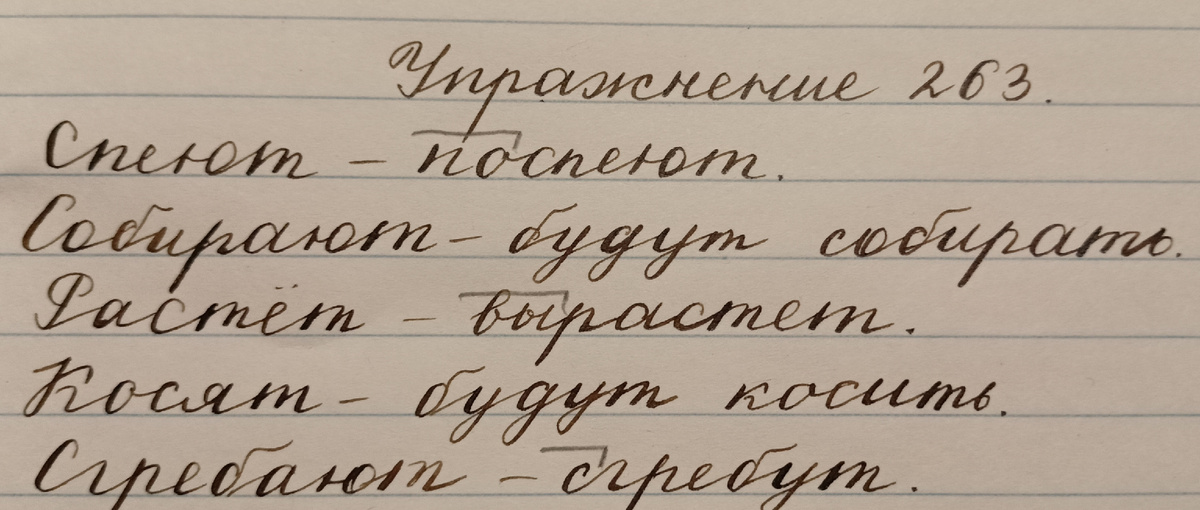 Упражнение 263.
Спеют – поспеют.
Собирают – будут собирать.
Растёт – вырастет.
Косят – будут косить.
Сгребают – сгребут.